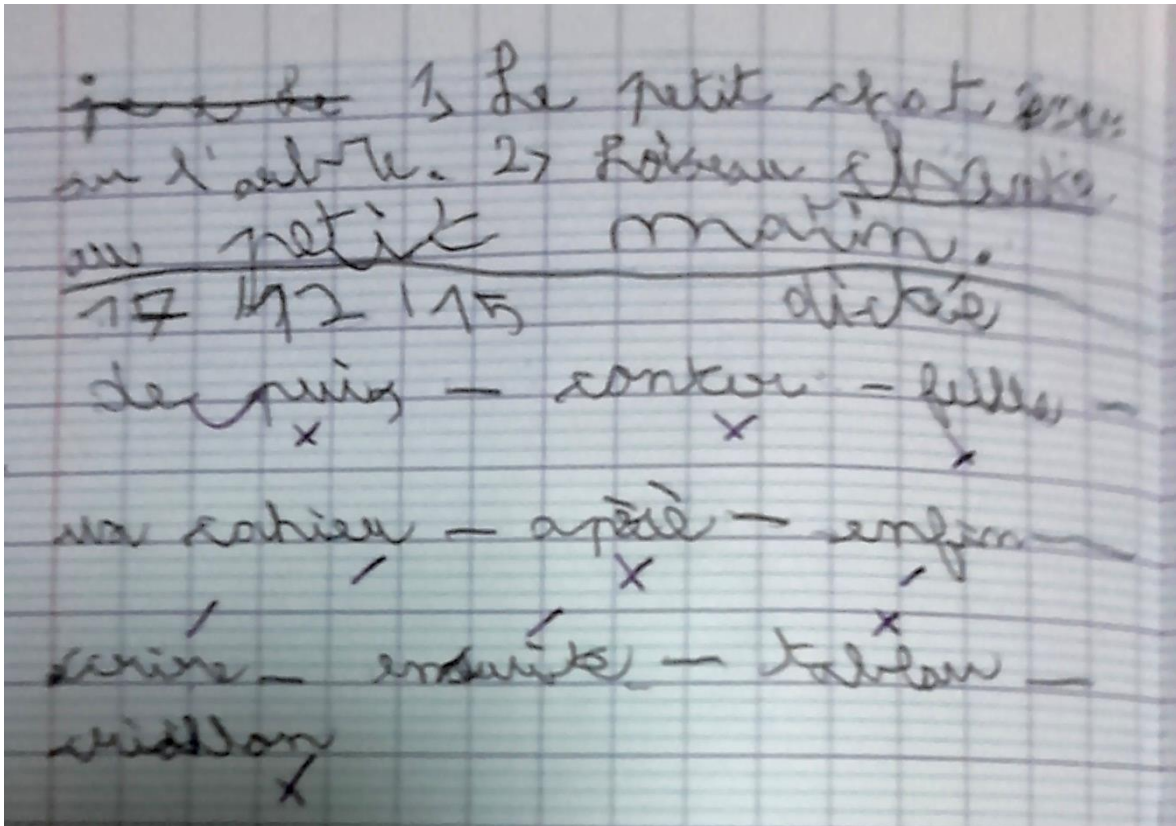 1) Le petit chat
au l'arbre. 2) Loiseau chante
au petit matin.
17 12 15 dictée
depuis – conter – fille –
un cahier – après – enfin –
écrire – ensuite – tableau –